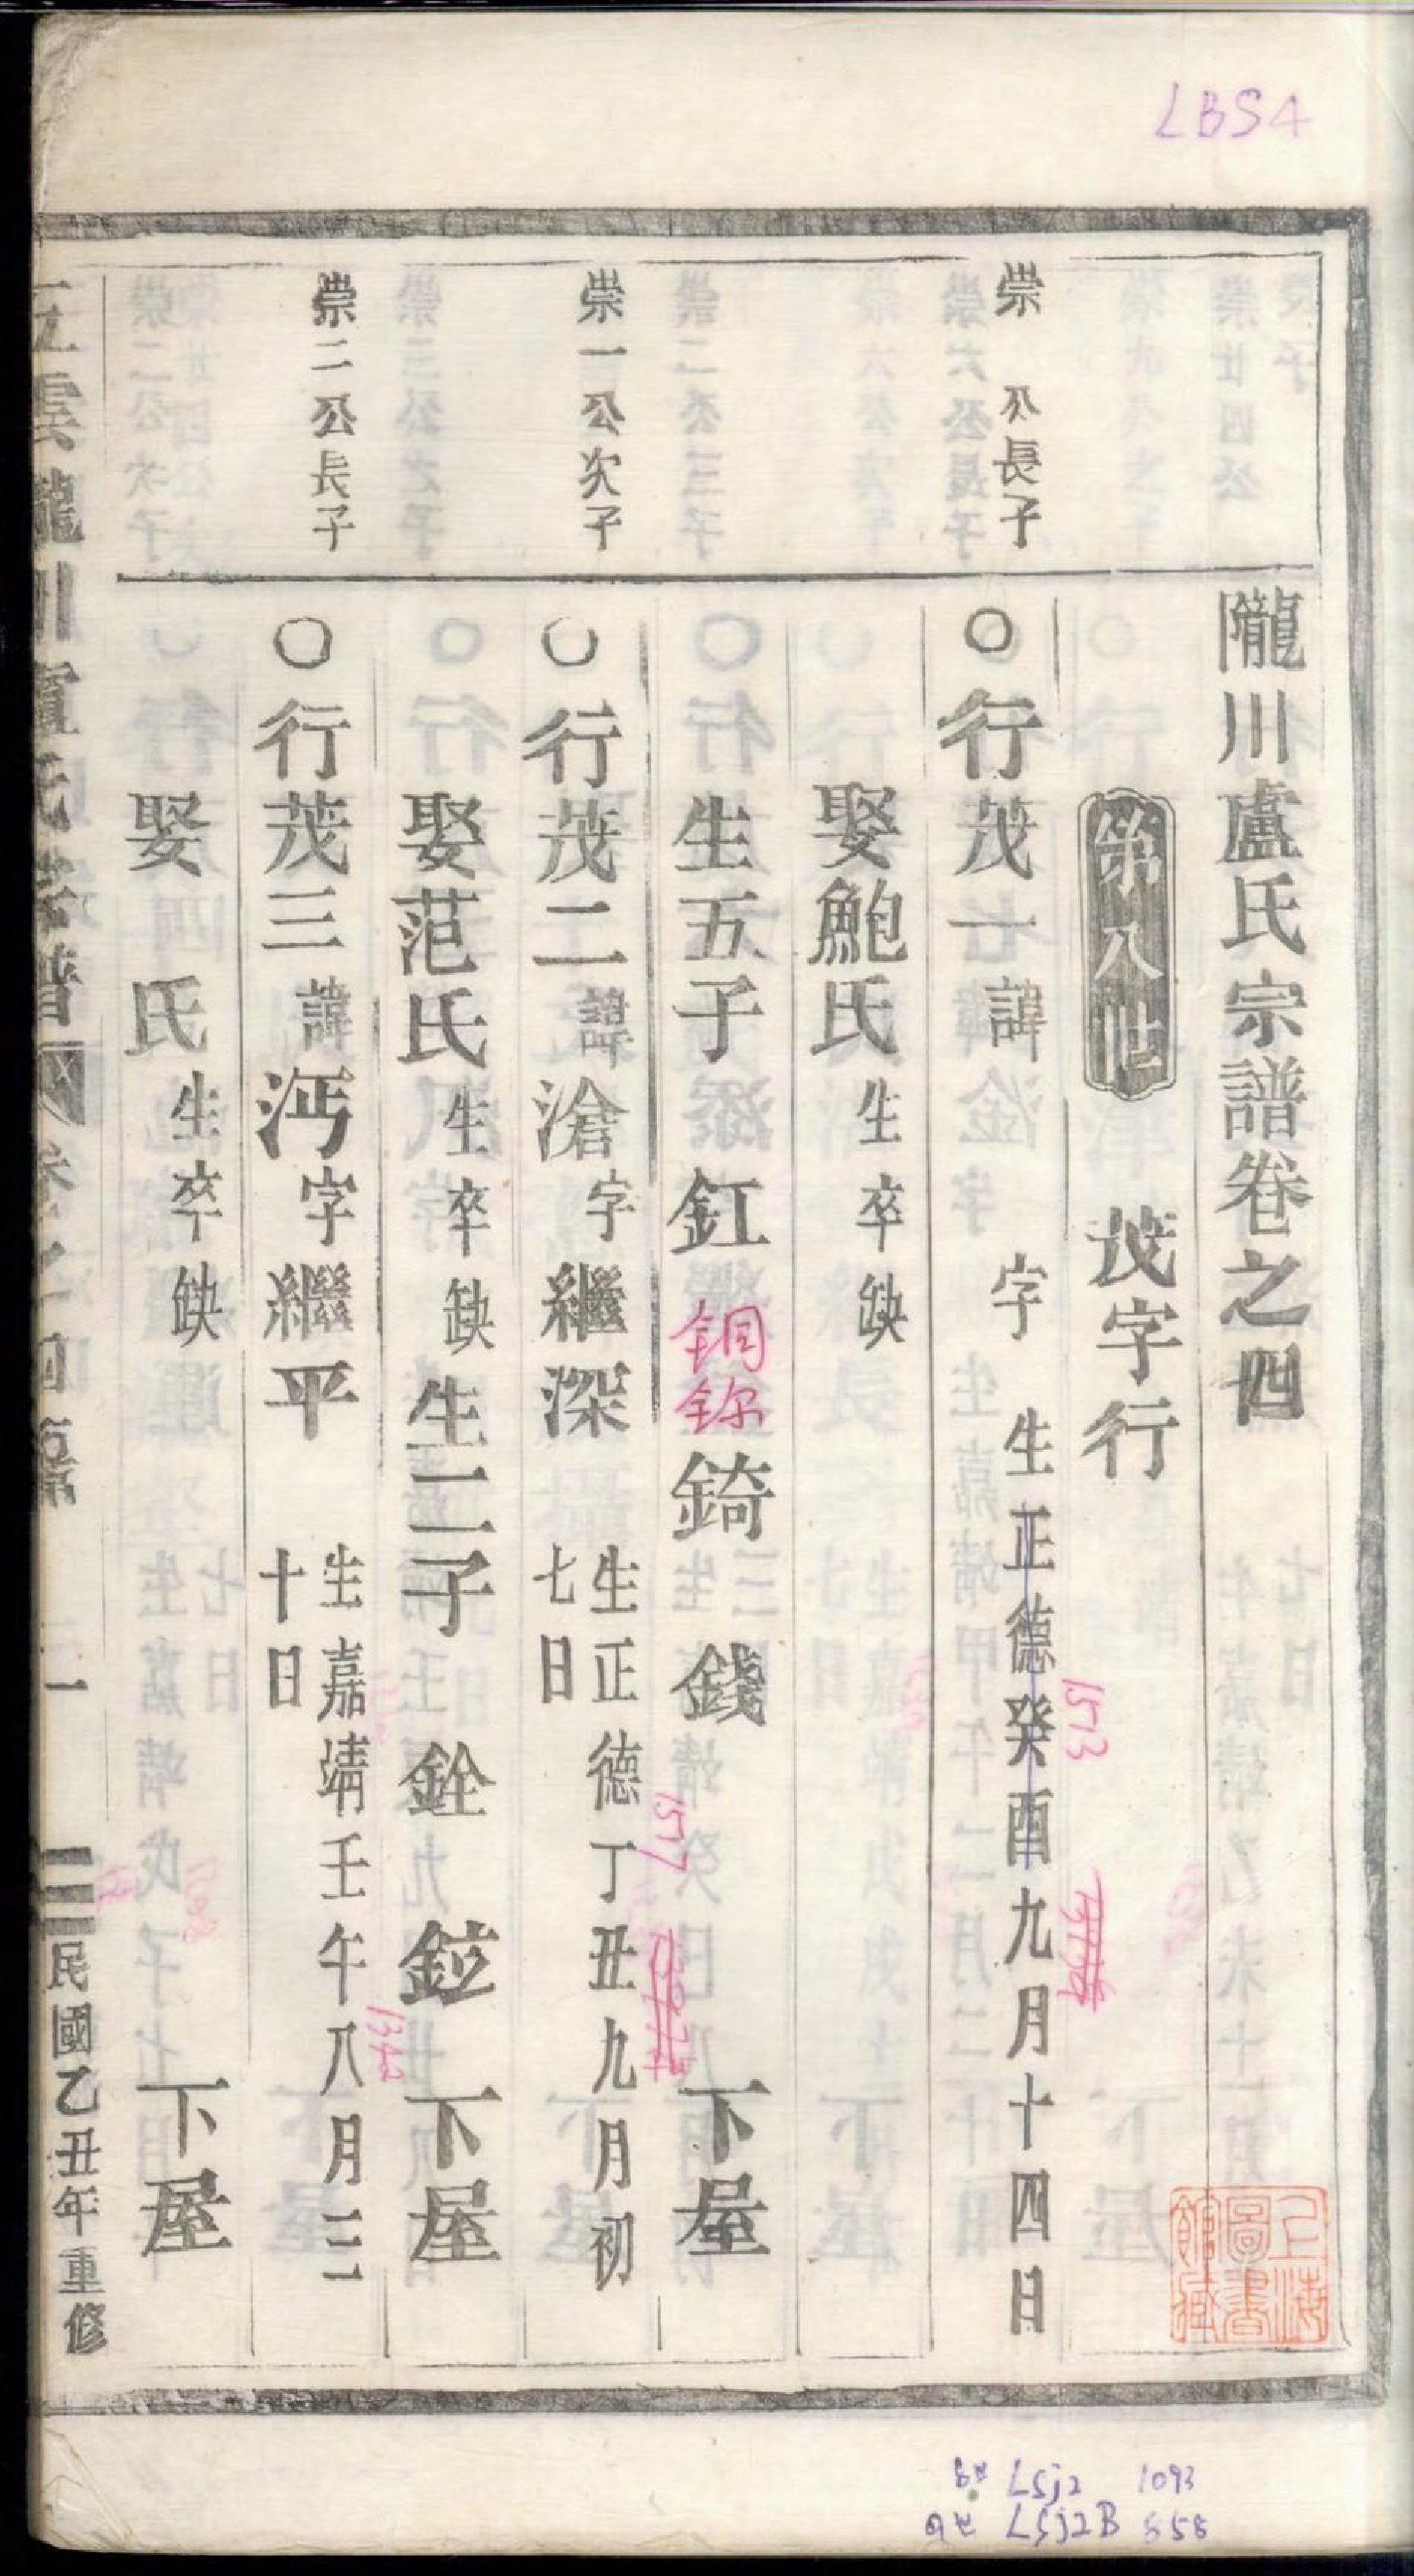 LBS4
隴川盧氏宗譜卷之四
第八世 茂字行
崇 公長子
○行茂一諱 字 生正德癸酉九月十四日
1513
娶鮑氏生卒缺
生五子 釭 銅 鉨 錡 錢 下屋
崇一公次子
○行茂二諱滄字繼深 生正德丁丑九月初七日
1517
娶范氏生卒缺生二子 銓 鉝 下屋
崇二公長子
○行茂三諱沔字繼平 生嘉靖壬午八月三十日
娶 氏生卒缺 下屋
五雲隴川盧氏宗譜 卷之四第 一 民國乙丑年重修
上海圖書館藏
8世 Lsj2 1093
9世 Lsj2B 858